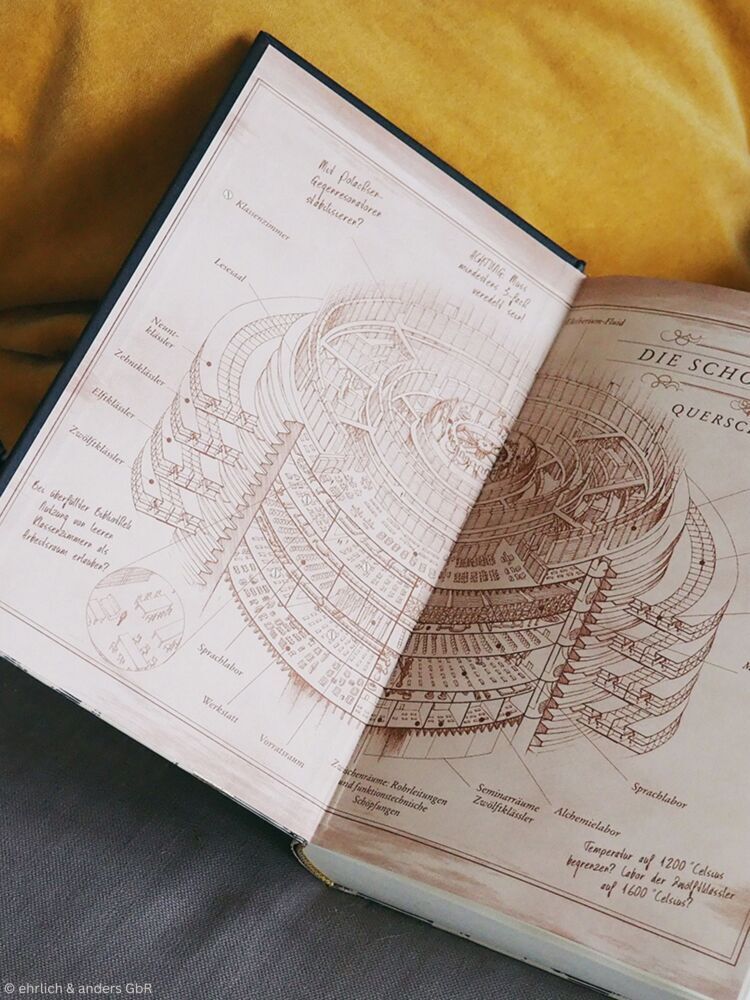 Mit Polachsen-
Gegenresonatoren
stabilisieren?
Klassenzimmer
ACHTUNG Muss
mindestens 3-fach
veredelt sein!
Lesesaal
Neunt-
klässler
Zehntklässler
Elftklässler
Zwölftklässler
Bei überfüllter Bibliothek
Nutzung von leeren
Klassenzimmern als
Arbeitsraum erlauben?
Sprachlabor
Werkstatt
Vorratsraum
-Fluid
DIE SCHO
QUERSC
Zwischenräume: Rohrleitungen
und funktionstechnische
Schöpfungen
Seminarräume
Zwölftklässler
Alchemielabor
Sprachlabor
Temperatur auf 1200 °Celsus
begrenzen? Labor der Zwölftklässler
auf 1600 °Celsus?
© ehrlich & anders GbR